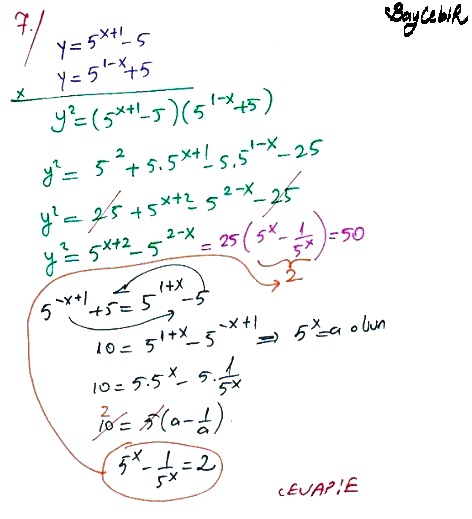 BayCebiR
7./
y = 5^{x+1} - 5
y = 5^{1-x} + 5
x
y² = (5^{x+1} - 5)(5^{1-x} + 5)
y² = 5² + 5.5^{x+1} - 5.5^{1-x} - 25
y² = 25 + 5^{x+2} - 5^{2-x} - 25
y² = 5^{x+2} - 5^{2-x} = 25(5^x - 1/5^x) = 50
2
5^{-x+1} + 5 = 5^{1+x} - 5
10 = 5^{1+x} - 5^{-x+1} ⇒ 5^x = a olsun
10 = 5.5^x - 5.1/5^x
2
10 = 5(a - 1/a)
5^x - 1/5^x = 2
CEVAP:E